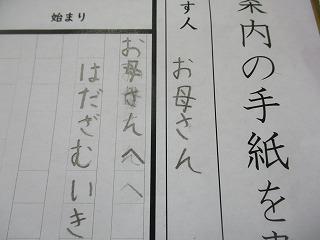 案内の手紙を
す人
お母さん
始まり
お母さんへへ
はだざむいき